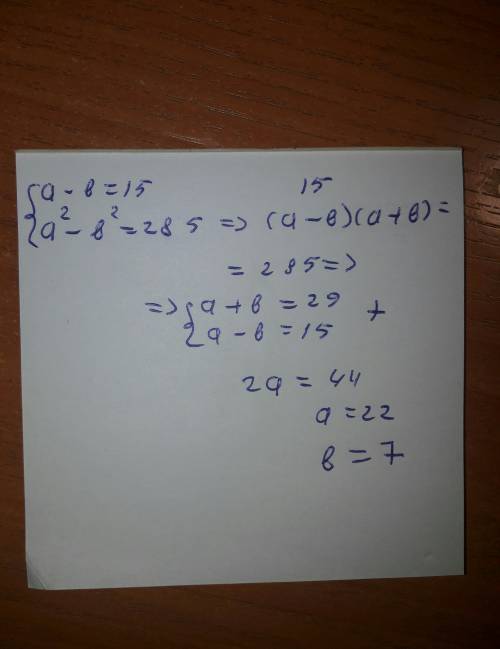 {a - в = 15
15
{a² - в² = 285 => (a - в)(a + в) =
= 285 =>
=> {a + в = 29 +
{a - в = 15
2a = 44
a = 22
в = 7